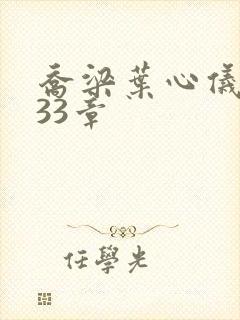 喬梁葉心儀
33章
任學光